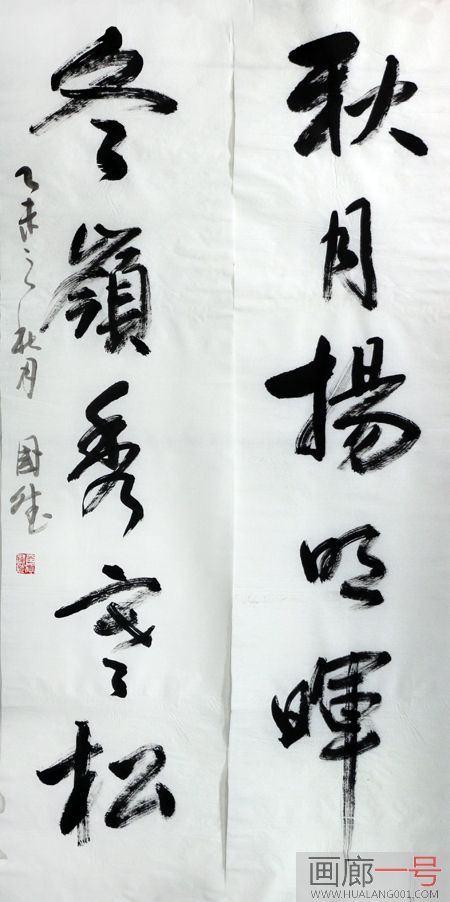 秋月揚明暉
冬嶺秀寒松
乙未之秋月 國維
画廊一号
WWW.HUALANG001.COM